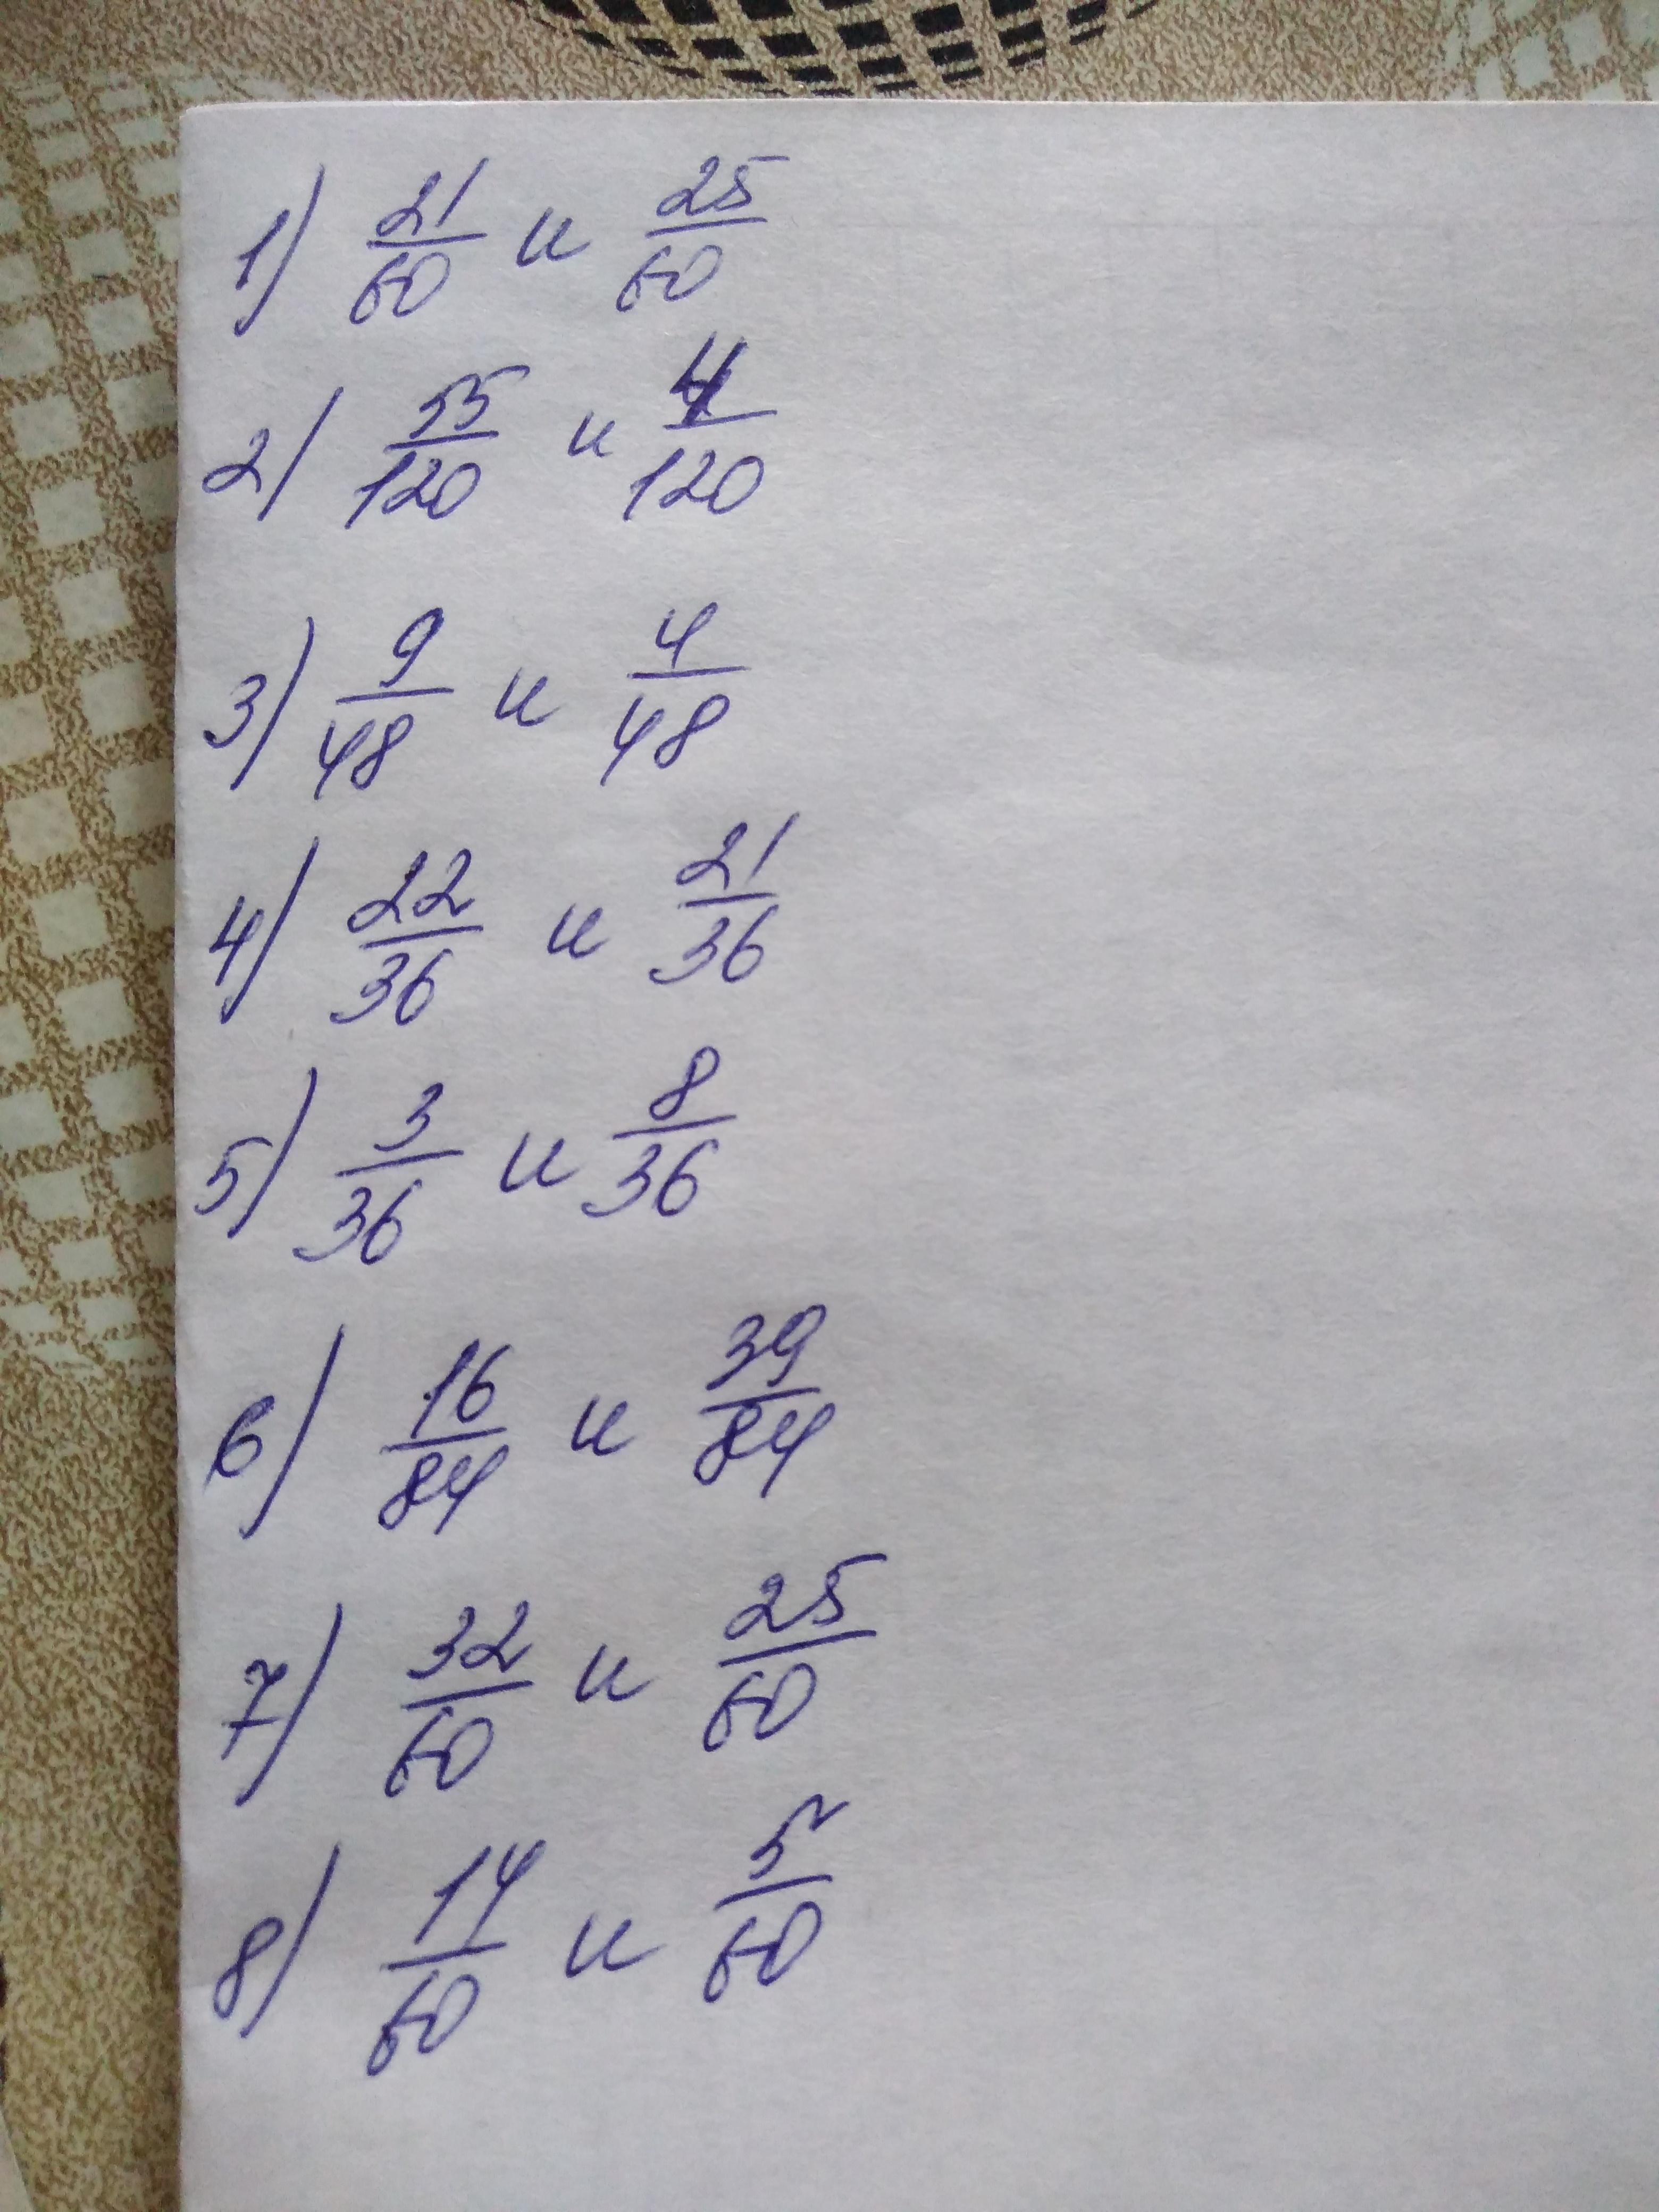 1) 21/60 и 25/60
2) 55/120 и 4/120
3) 9/48 и 4/48
4) 22/36 и 21/36
5) 3/36 и 8/36
6) 16/84 и 39/84
7) 32/60 и 25/60
8) 14/60 и 5/60